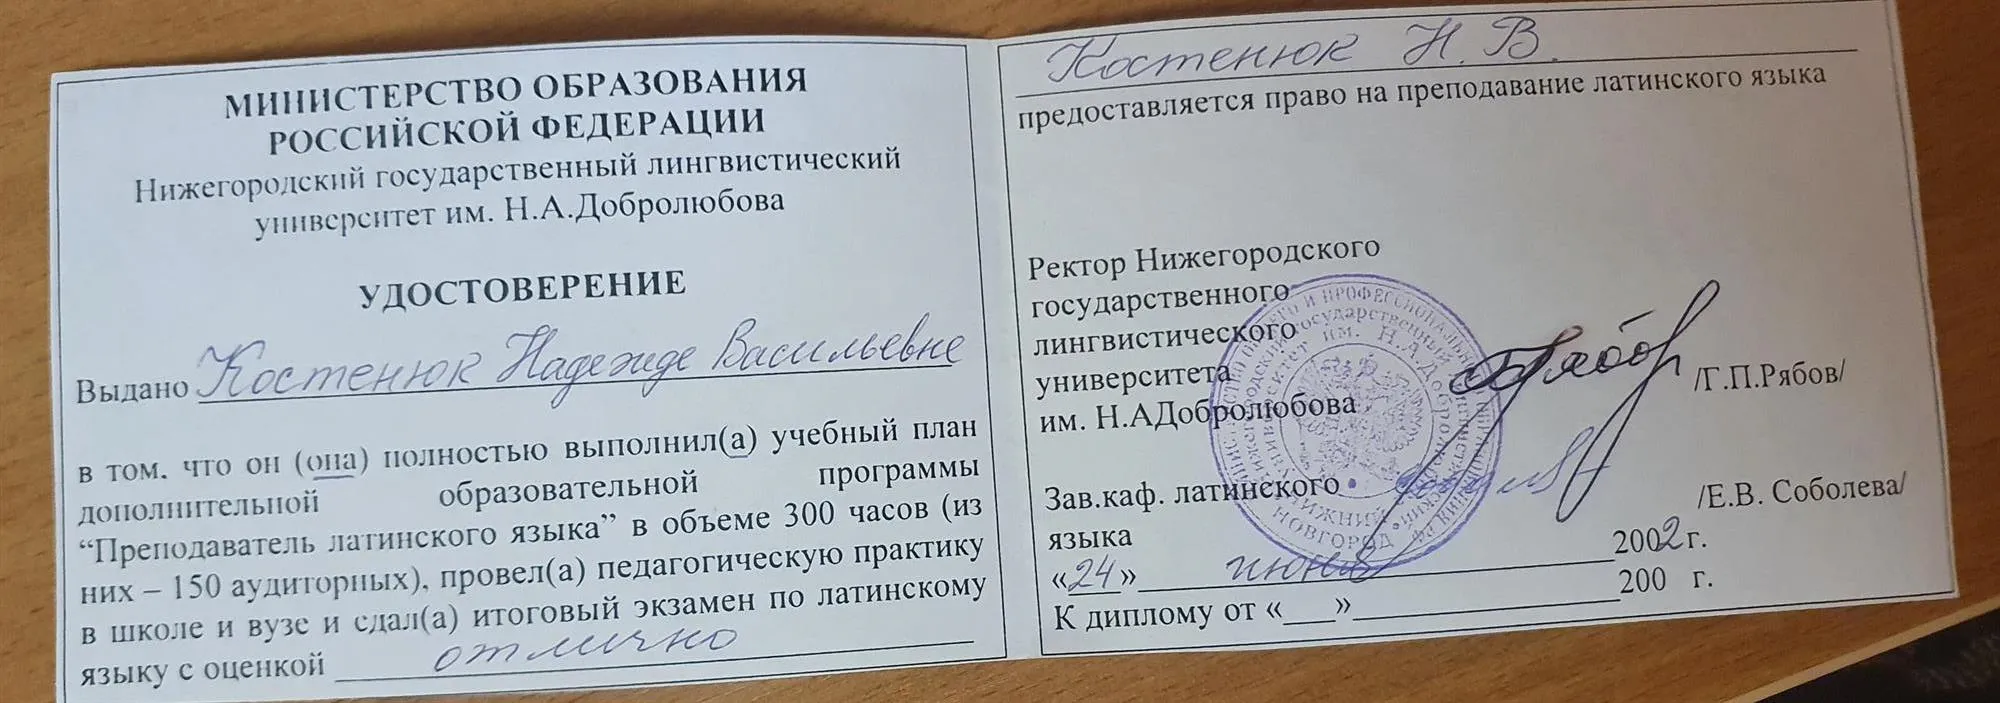 МИНИСТЕРСТВО ОБРАЗОВАНИЯ
РОССИЙСКОЙ ФЕДЕРАЦИИ
Нижегородский государственный лингвистический
университет им. Н.А.Добролюбова
УДОСТОВЕРЕНИЕ
Выдано Костенюк Надежде Васильевне
в том, что он (она) полностью выполнил(а) учебный план
дополнительной образовательной программы
“Преподаватель латинского языка” в объеме 300 часов (из
них – 150 аудиторных), провел(а) педагогическую практику
в школе и вузе и сдал(а) итоговый экзамен по латинскому
языку с оценкой отлично
Костенюк Н. В.
предоставляется право на преподавание латинского языка
Ректор Нижегородского
государственного
лингвистического
университета
им. Н.АДобролюбова /Г.П.Рябов/
Зав.каф. латинского /Е.В. Соболева/
языка
«24» июня 2002г.
К диплому от «___»____________200 г.
НИЖНИЙ
НОВГОРОД